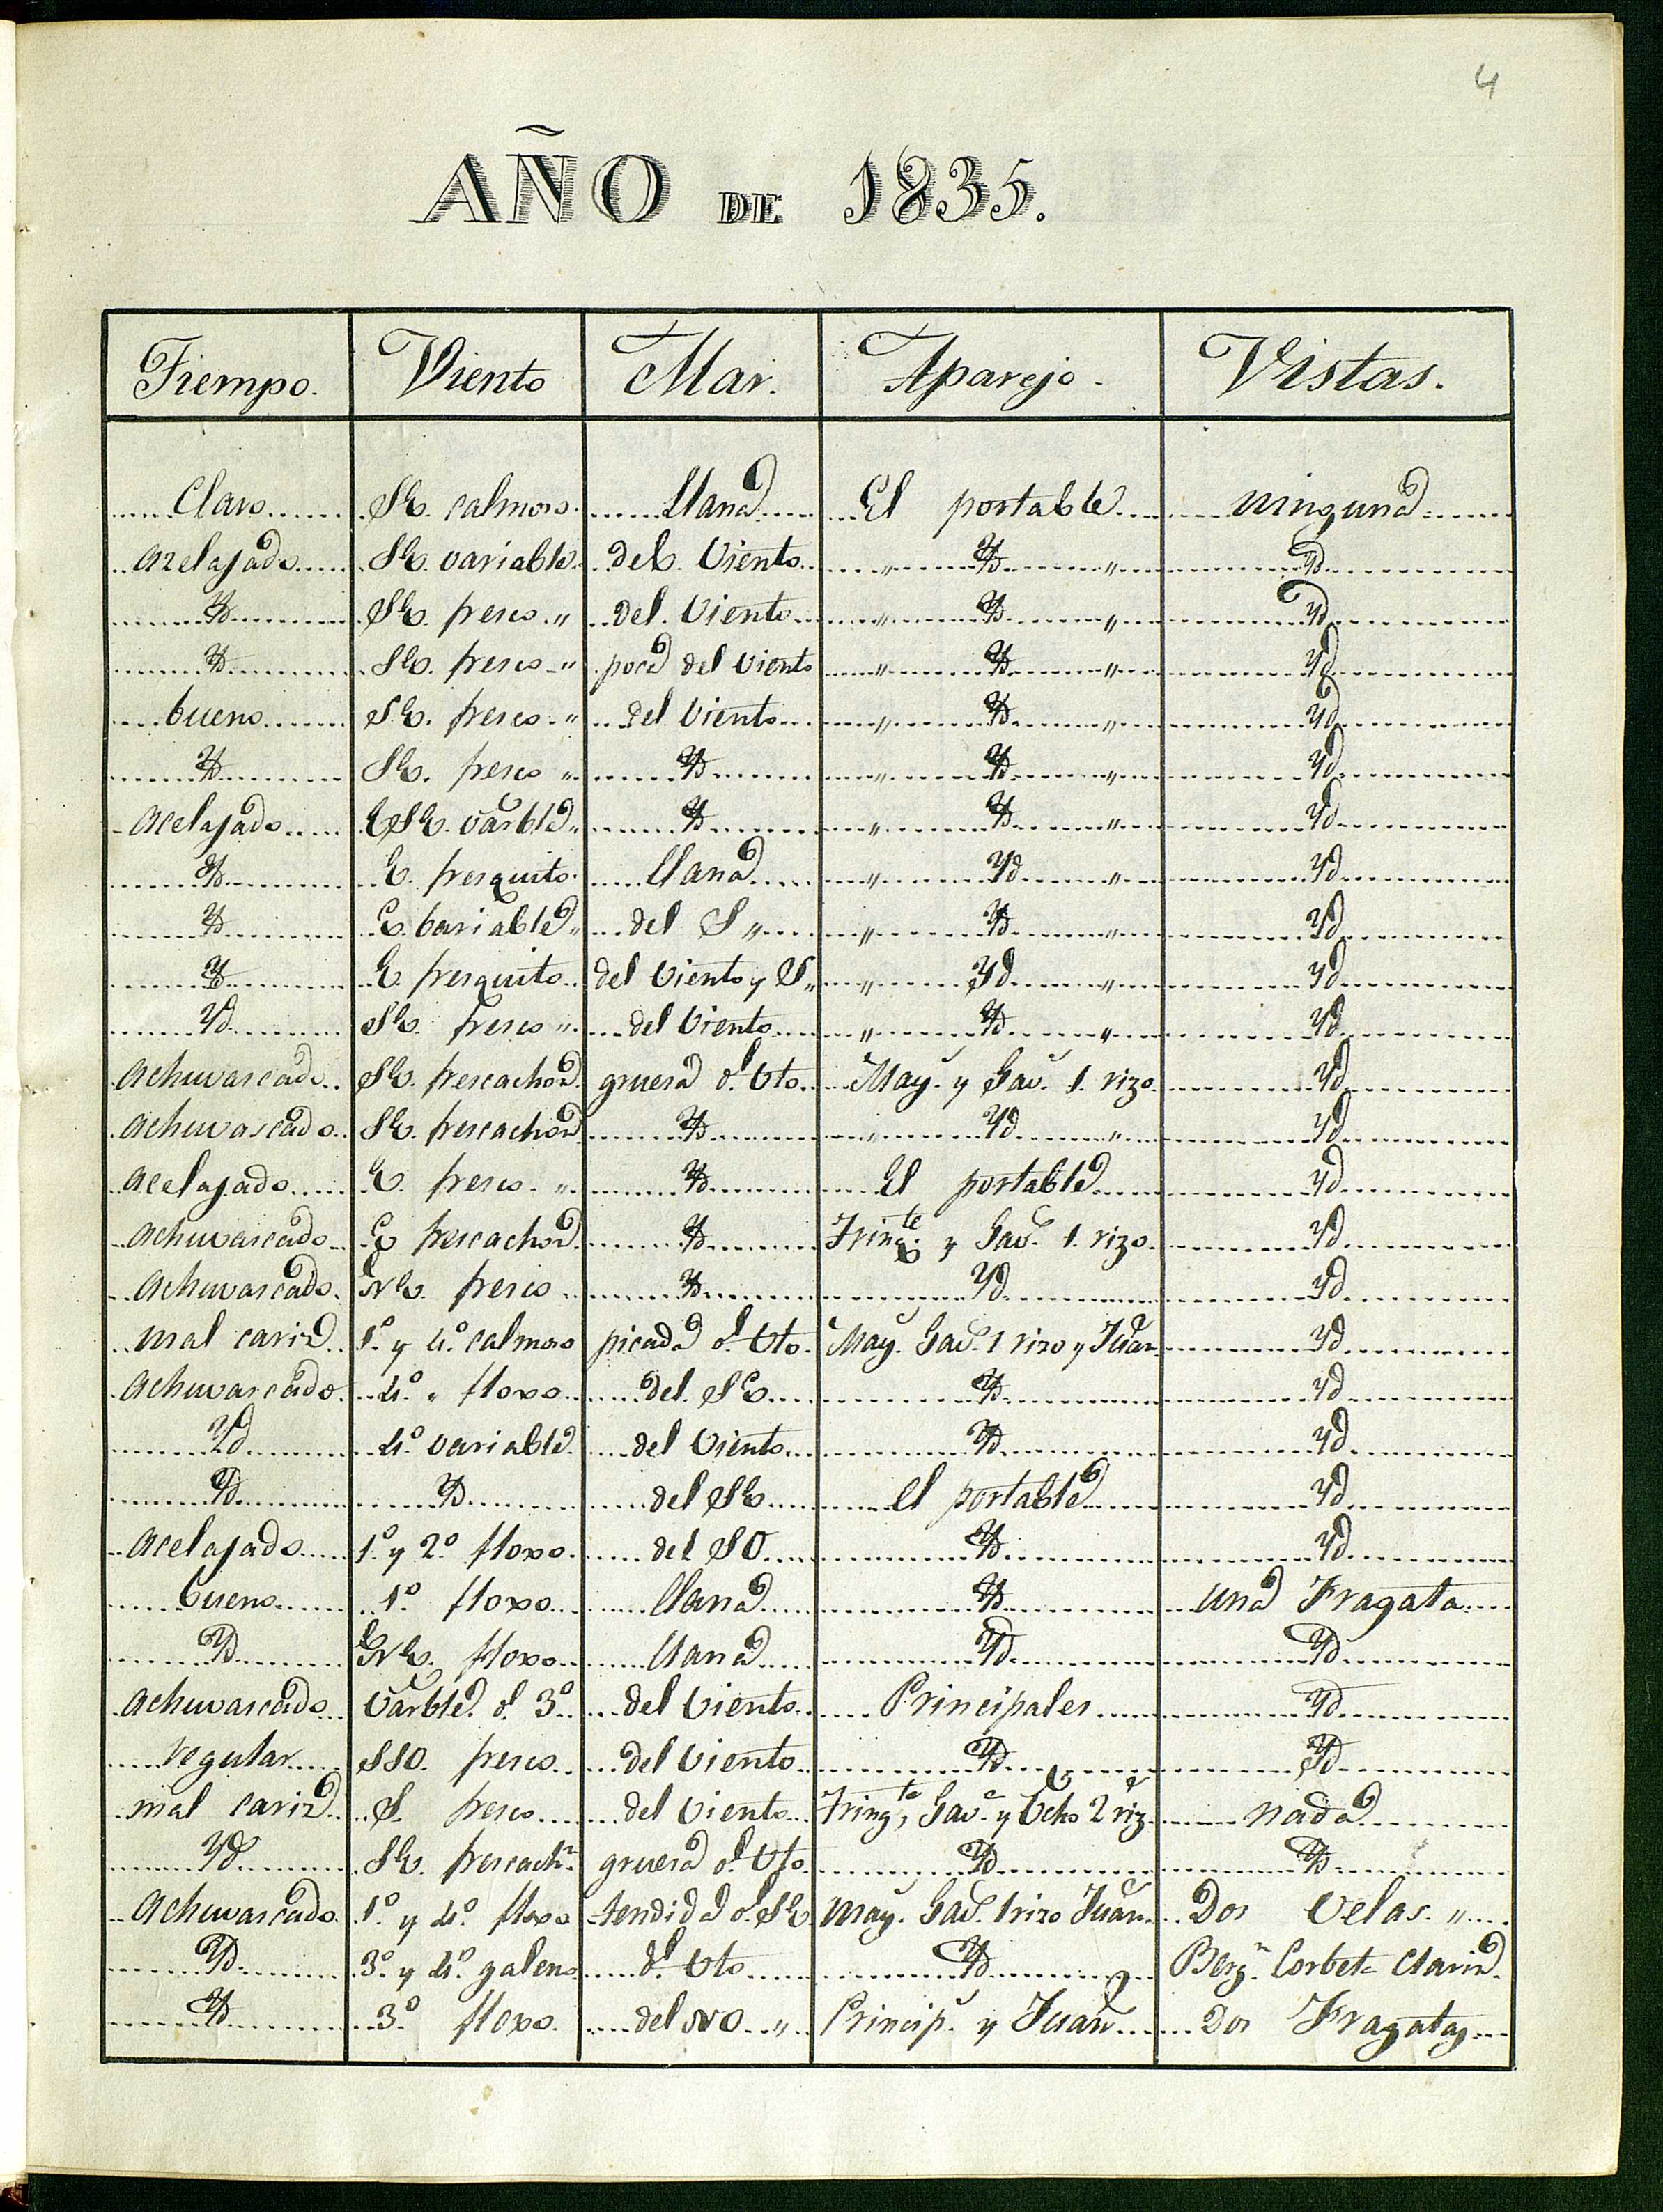 4
AÑO DE 1835.
Tiempo. Viento Mar. Aparejo. Vistas.
Claro SE. calmoso. Llana El portable ninguna
azelajado SE. variable del Viento " Yd " Yd
Yd SE. fresco " del Viento " Yd " Yd
Yd SE. fresco " poca del viento " Yd " Yd
bueno SE. fresco " del Viento " Yd " Yd
Yd SE. fresco " Yd " Yd " Yd
acelajado ESE. varble " Yd " Yd " Yd
Yd E. fresquito llana " Yd " Yd
Yd E. bariable " del S " " Yd " Yd
Yd E. fresquito del Viento y S " " Yd " Yd
Yd SE. fresco " del Viento " Yd " Yd
achuvascado SE. frescachon gruesa dl. Vto. Mayr. y Gavs. 1. rizo Yd
achuvascado SE. frescachon Yd " Yd " Yd
acelajado E. fresco " Yd El portable Yd
achuvascado E frescachon Yd Trinqte. y Gavs. 1. rizo Yd
achuvascado NE. fresco Yd Yd Yd
mal cariz 1º. y 4º. calmoso picada dl. Vto. Mayr. Gavs. 1 rizo y Juans. Yd
achuvascado 4º. " floxo del SE Yd Yd
Yd 4º variable del Viento Yd Yd
Yd Yd del SE el portable Yd
acelajado 1º. y 2º floxo del SO Yd Yd
bueno 1º. floxo llana Yd una Fragata
Yd NE. floxo llana Yd Yd
achuvascado varble dl. 3º del Viento Principales Yd
regular SSO. fresco del Viento Yd Yd
mal cariz S. fresco del Viento Trinqte, Gavs. y Vcho 2 rizs. nada
Yd SE. frescachn. gruesa dl. Vto. Yd Yd
achuvascado 1º. y 4º. floxo tendida dl. SE Mayr. Gavs. 1 rizo Juans. Dos Velas. "
Yd 3º. y 4º. galeno dl. Vto Yd Bergn. Corbeta Clarin
Yd 3º. floxo del NO " Princips. y Juans Dos Fragatas